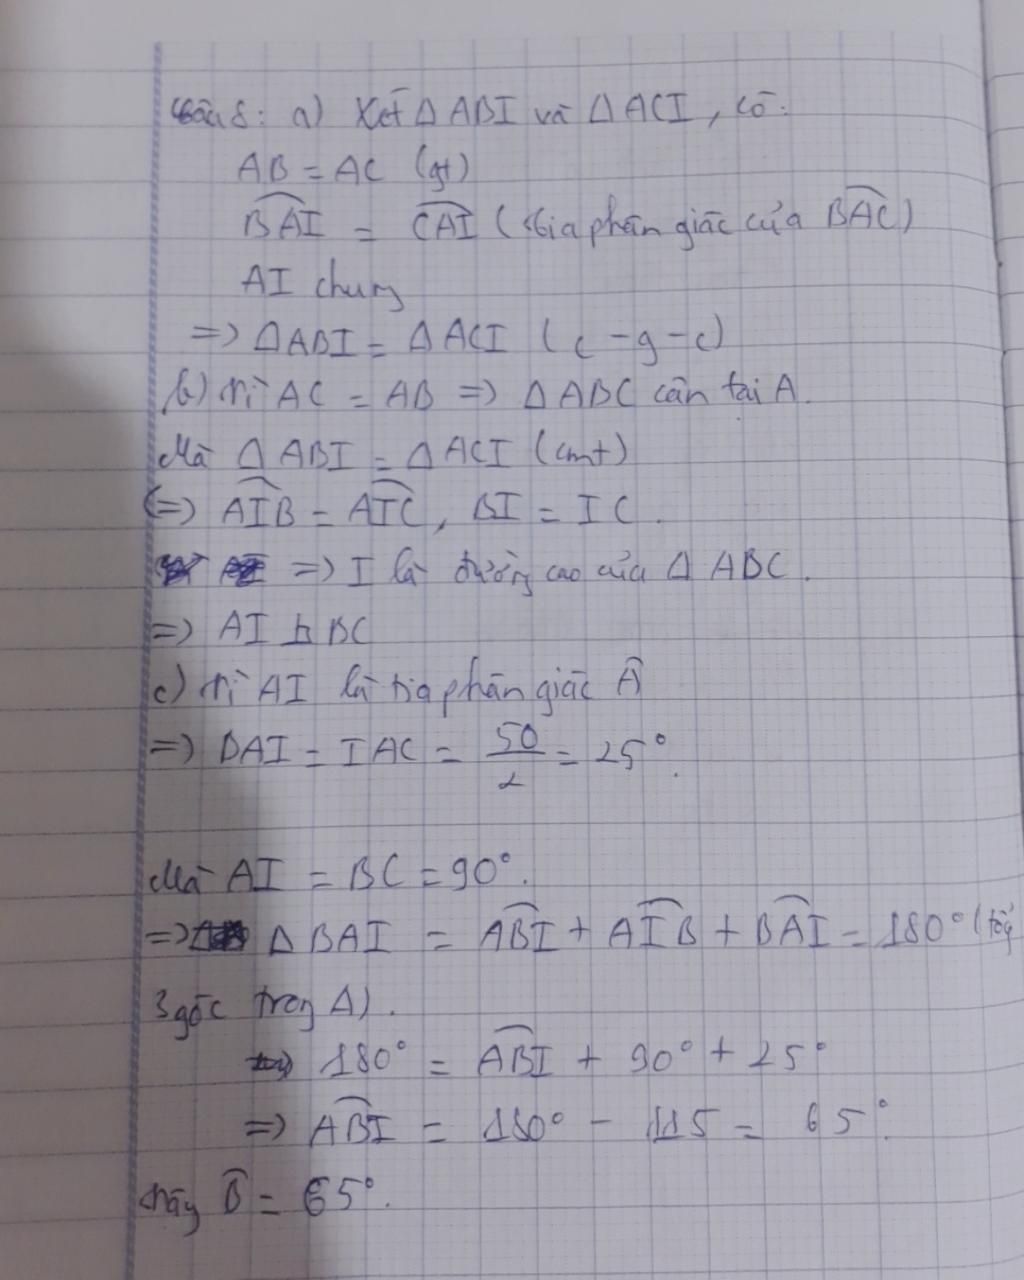 Câu 8: a) Xét Δ ABI và Δ ACI, có:
AB = AC (gt)
$\widehat{BAI}$ = $\widehat{CAI}$ (tia phân giác của $\widehat{BAC}$)
AI chung
=> Δ ABI = Δ ACI (c-g-c)
b) Vì AC = AB => Δ ABC cân tại A.
Mà Δ ABI = Δ ACI (cmt)
(=> $\widehat{AIB}$ = $\widehat{AIC}$, BI = IC.
=> I là đường cao của Δ ABC.
=> AI ⊥ BC
c) Vì AI là tia phân giác $\widehat{A}$
=> BAI = IAC = $\frac{50}{2}$ = 25°.
Mà AI = BC = 90°.
=> Δ BAI = $\widehat{ABI}$ + $\widehat{AIB}$ + $\widehat{BAI}$ = 180° (tổng
3 góc trong Δ).
=> 180° = $\widehat{ABI}$ + 90° + 25°
=> $\widehat{ABI}$ = 180° - 115 = 65°.
Vậy $\widehat{B}$ = 65°.